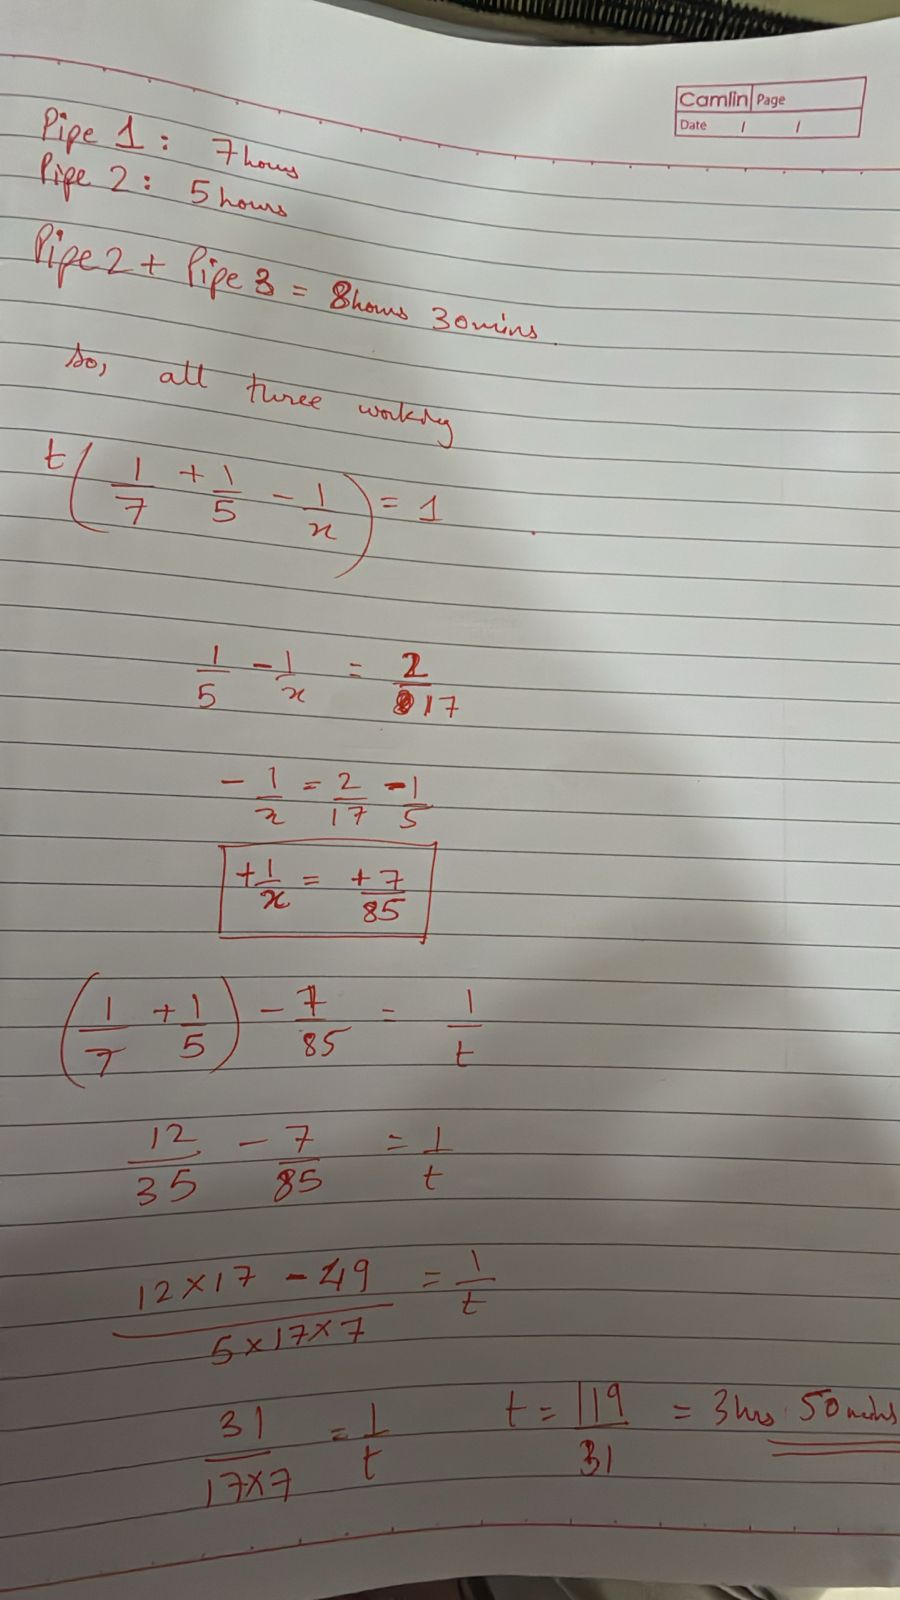 Camlin Page
Date / /
Pipe 1: 7 hours
Pipe 2: 5 hours
Pipe 2 + Pipe 3 = 8 hours 30 mins.
So, all three working
t(1/7 + 1/5 - 1/x) = 1
1/5 - 1/x = 2/17
- 1/x = 2/17 - 1/5
+ 1/x = + 7/85
(1/7 + 1/5) - 7/85 = 1/t
12/35 - 7/85 = 1/t
(12×17 - 49)/(5×17×7) = 1/t
31/(17×7) = 1/t t = 119/31 = 3 hrs 50 mins